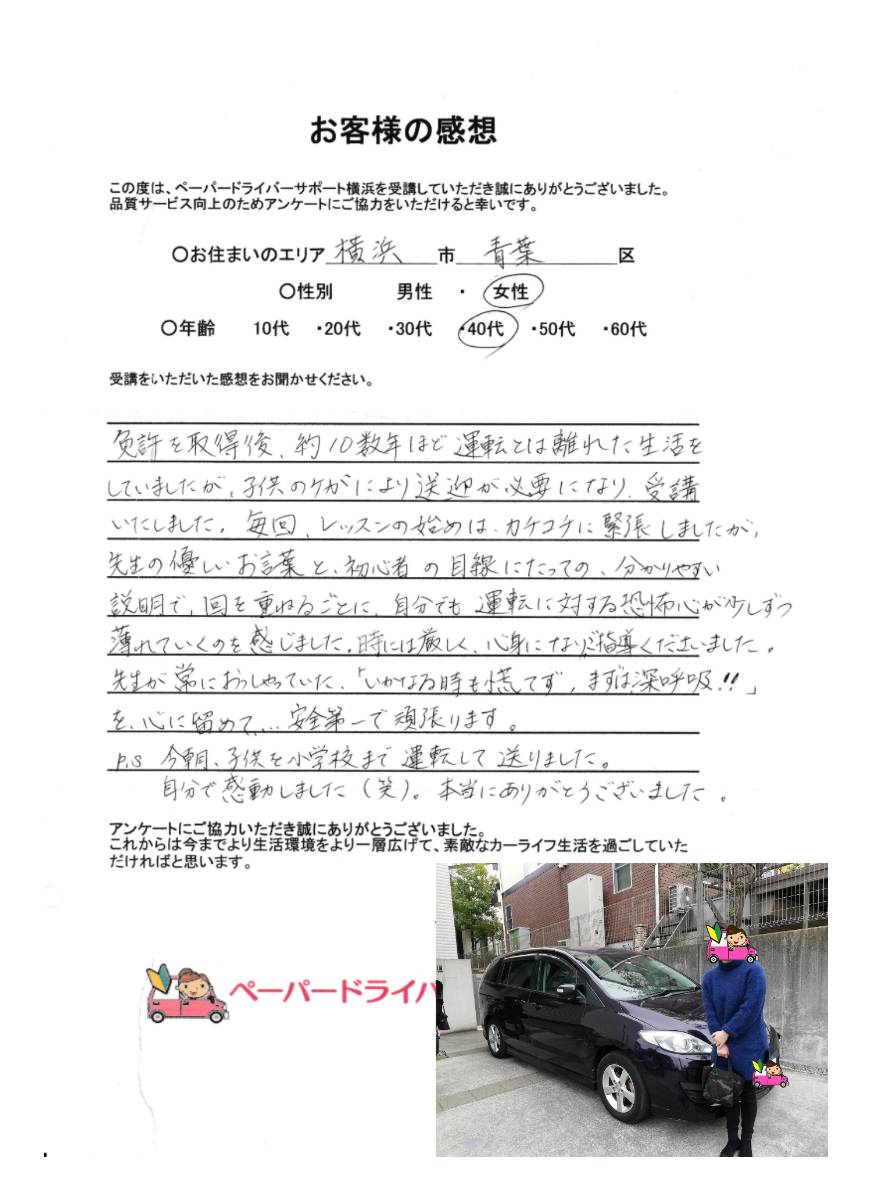 お客様の感想
この度は、ペーパードライバーサポート横浜を受講していただき誠にありがとうございました。
品質サービス向上のためアンケートにご協力をいただけると幸いです。
〇お住まいのエリア 横浜 市 青葉 区
〇性別 男性 ・ 女性
〇年齢 10代 ・20代 ・30代 ・40代 ・50代 ・60代
受講をいただいた感想をお聞かせください。
免許を取得後、約10数年ほど運転とは離れた生活を
していましたが、子供のケガにより送迎が必要になり、受講
いたしました。毎回、レッスンの始めは、カチコチに緊張しましたが、
先生の優しいお言葉と、初心者の目線にたっての、分かりやすい
説明で、回を重ねるごとに、自分でも運転に対する恐怖心が少しずつ
薄れていくのを感じました。時には厳しく、心身になりご指導くださいました。
先生が常におっしゃっていた、「いかなる時も慌てず、まずは深呼吸!!」
を、心に留めて…安全第一で頑張ります。
P.S 今朝、子供を小学校まで運転して送りました。
自分で感動しました(笑)。本当にありがとうございました。
アンケートにご協力いただき誠にありがとうございました。
これからは今までより生活環境をより一層広げて、素敵なカーライフ生活を過ごしていた
だければと思います。
ペーパードライバ